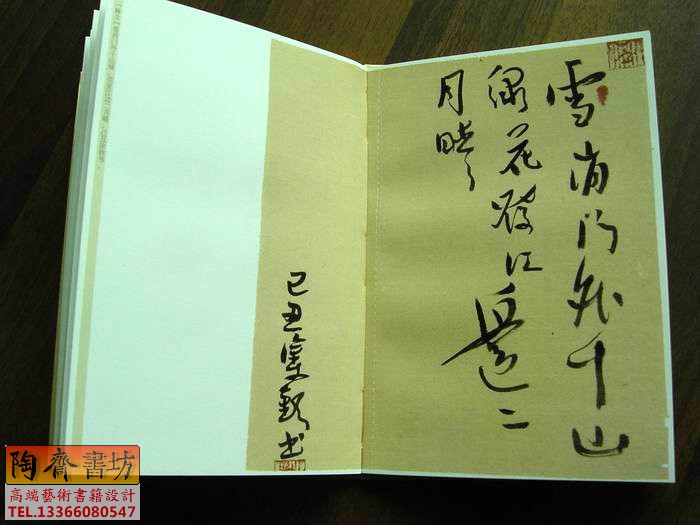 雪消门外千山
绿花发江边二
月晴
己丑
书
陶齋書坊
高端藝術書籍設計
TEL.13366080547